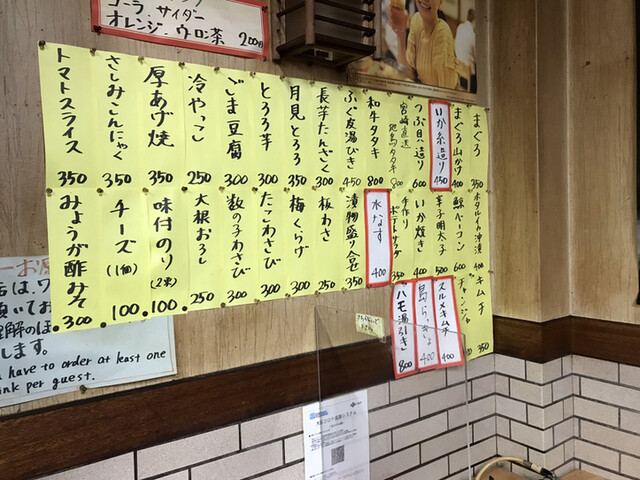 コーラ、サイダー
オレンジ、ウーロン茶 200
まぐろ 350
まぐろ山かけ 400
いか糸造り 450
つぶ貝造り 600
宮崎直送 地鳥タタキ 800
和牛タタキ 800
ふぐ皮湯びき 450
長芋たんざく 300
月見とろろ 350
とろろ芋 300
ごま豆腐 300
冷やっこ 250
厚あげ焼 350
さしみこんにゃく 350
トマトスライス 350
ホタルイカ沖漬 400
鯨ベーコン 600
辛子明太子 500
いか焼き 400
手作り ポテトサラダ 350
水なす 400
漬物盛り合せ 350
板わさ 300
梅くらげ 300
たこわさび 300
数の子わさび 300
大根おろし 250
味付のり(2束) 100
チーズ(1個) 100
みょうが酢みそ 300
キムチ 350
チャンジャ
スルメキムチ 400
島らっきょ 400
ハモ湯引き 800
have to order at least one
nk per guest.